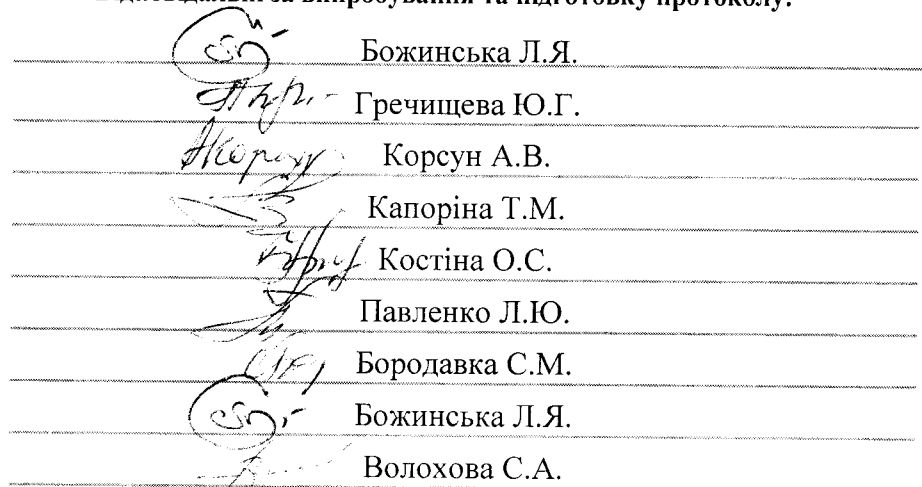 Відповідальні за випробування та підготовку протоколу:
Божинська Л.Я.
Гречищева Ю.Г.
Корсун А.В.
Капоріна Т.М.
Костіна О.С.
Павленко Л.Ю.
Бородавка С.М.
Божинська Л.Я.
Волохова С.А.